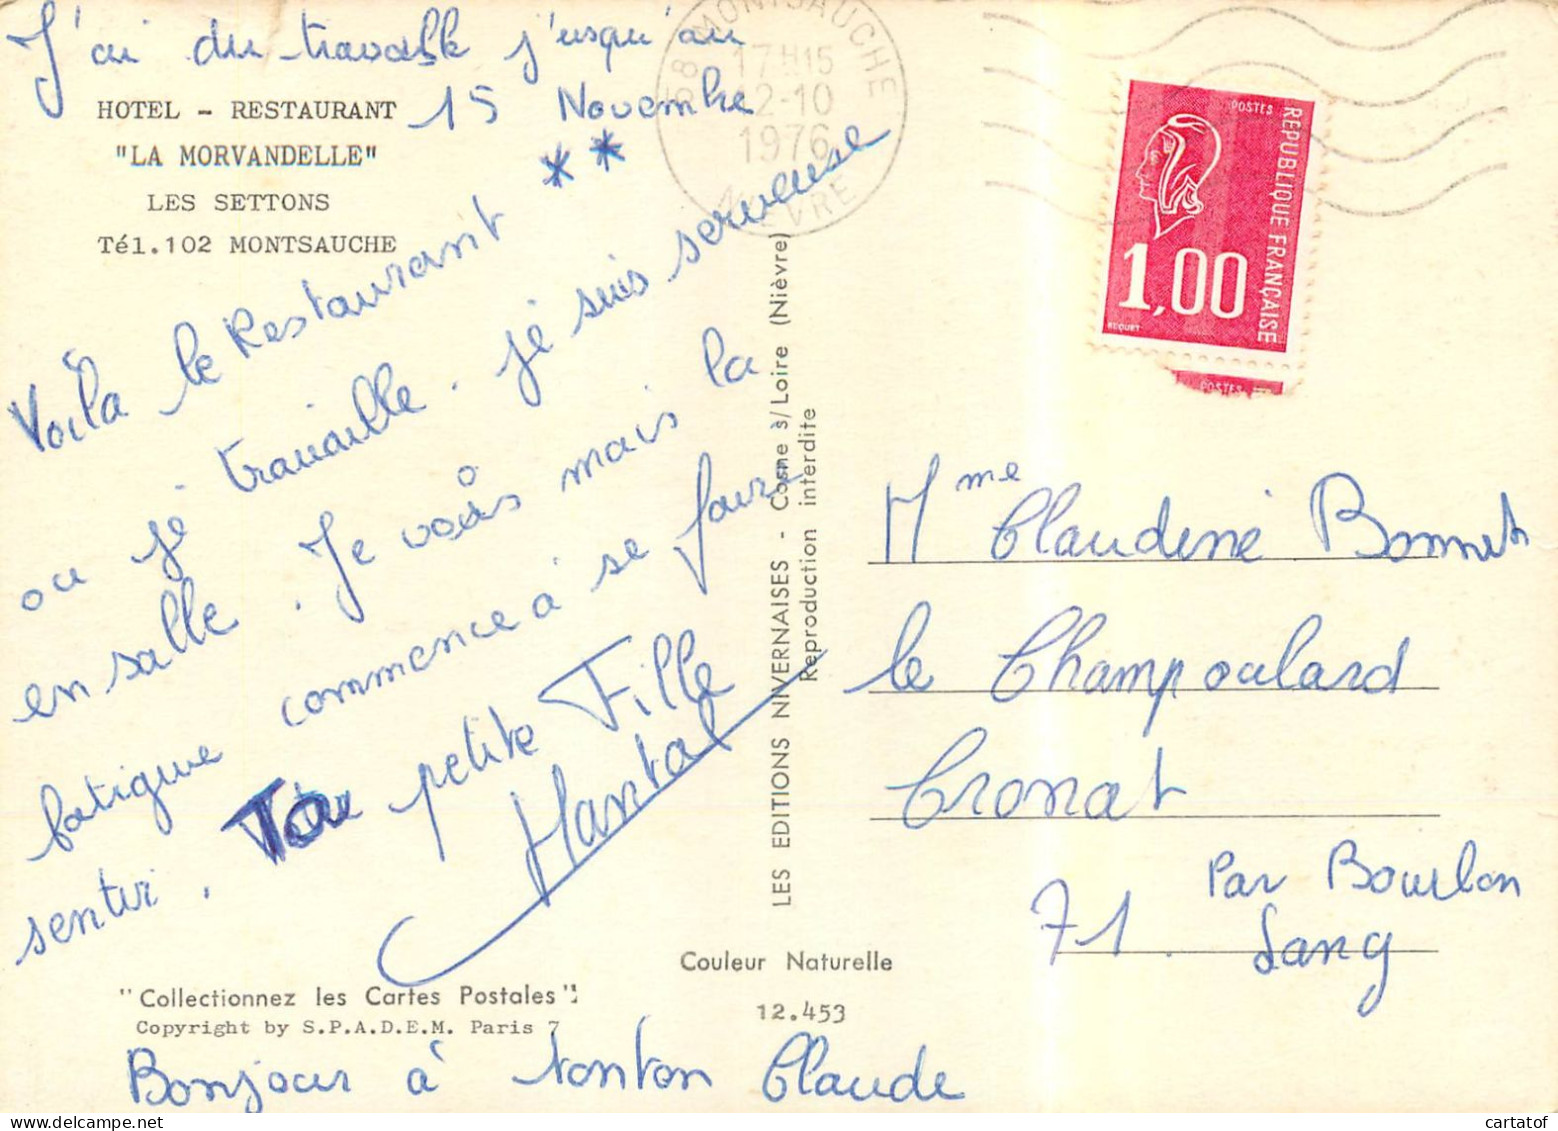 J'ai du travaille j'usqu'au
15 Novembre
HOTEL - RESTAURANT
"LA MORVANDELLE"
LES SETTONS
Tél.102 MONTSAUCHE
Voila le Restaurant **
ou je travaille. je suis serveuse
en salle. Je vais mais la
fatigue commence à se faire
sentir. Ta petite Fille
Chantal
"Collectionnez les Cartes Postales"
Copyright by S.P.A.D.E.M. Paris 7
Bonjour à tonton Claude
58 MONTSAUCHE
17H15
12-10
1976
NIEVRE
LES EDITIONS NIVERNAISES - Cosne s/Loire (Nièvre)
Reproduction interdite
Couleur Naturelle
12.453
POSTES
REPUBLIQUE FRANÇAISE
1,00
BEQUET
POSTES
Mme Claudine Bonnet
le Champoulard
Cronat
71. Par Bourbon
Lancy
cartatof